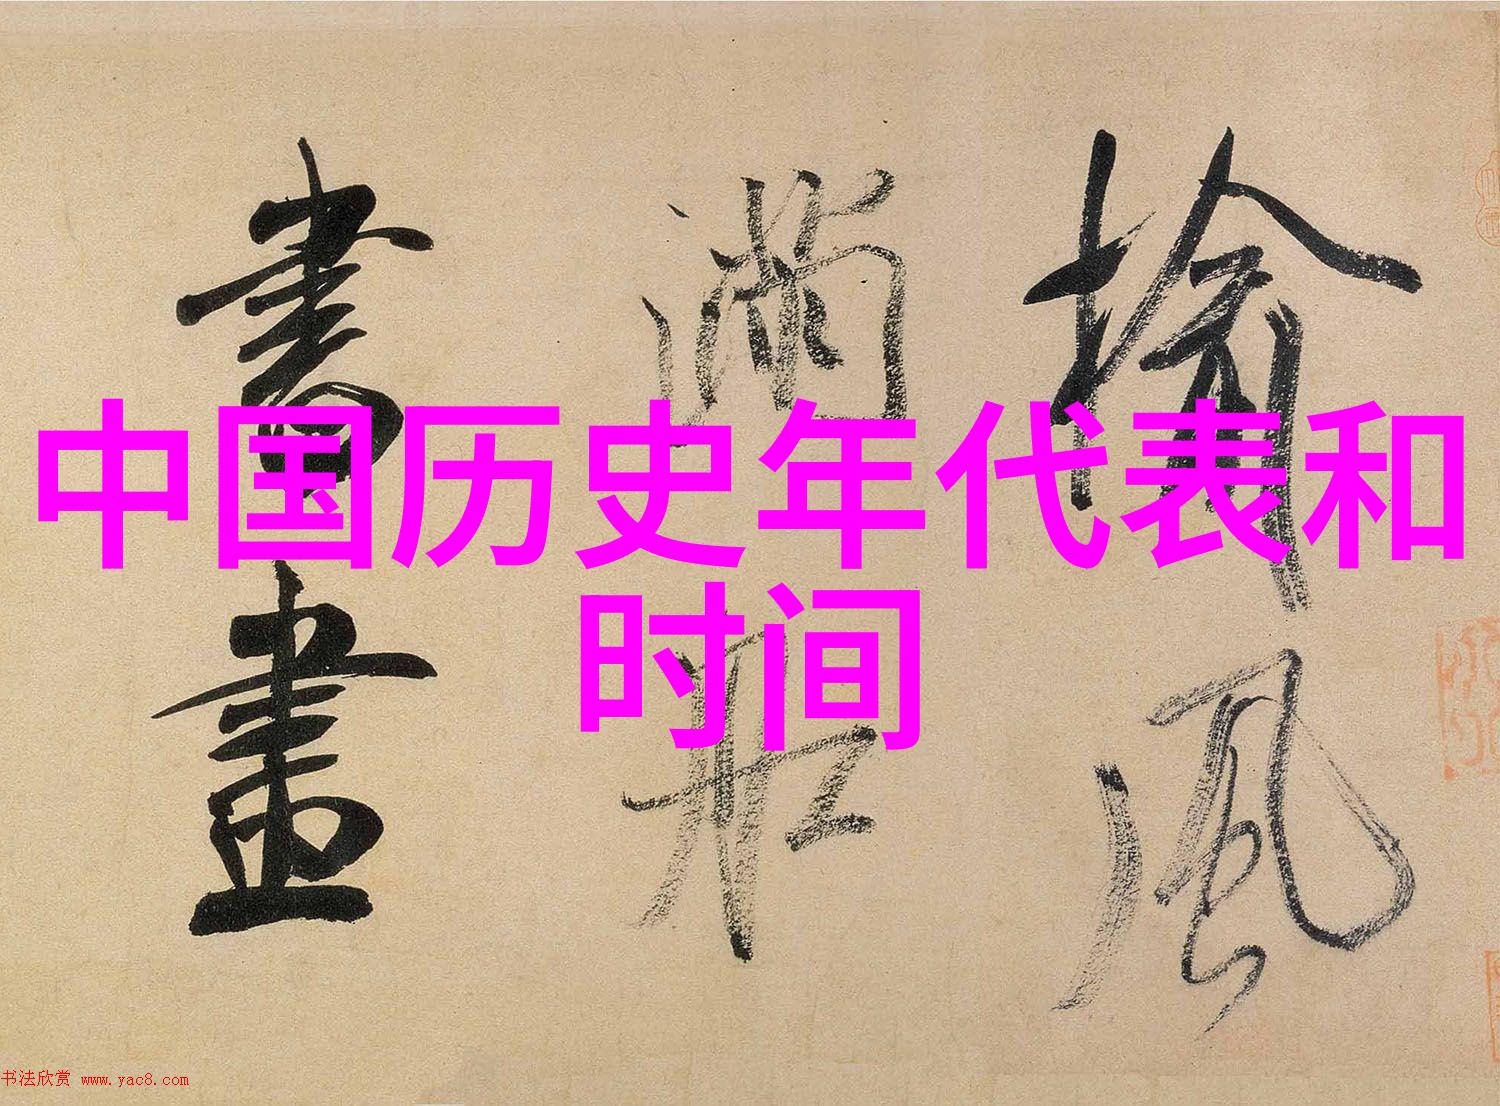 中国历史年代表和
时间
揄風
滿牀
書畫
书法欣赏 www.yac8.com